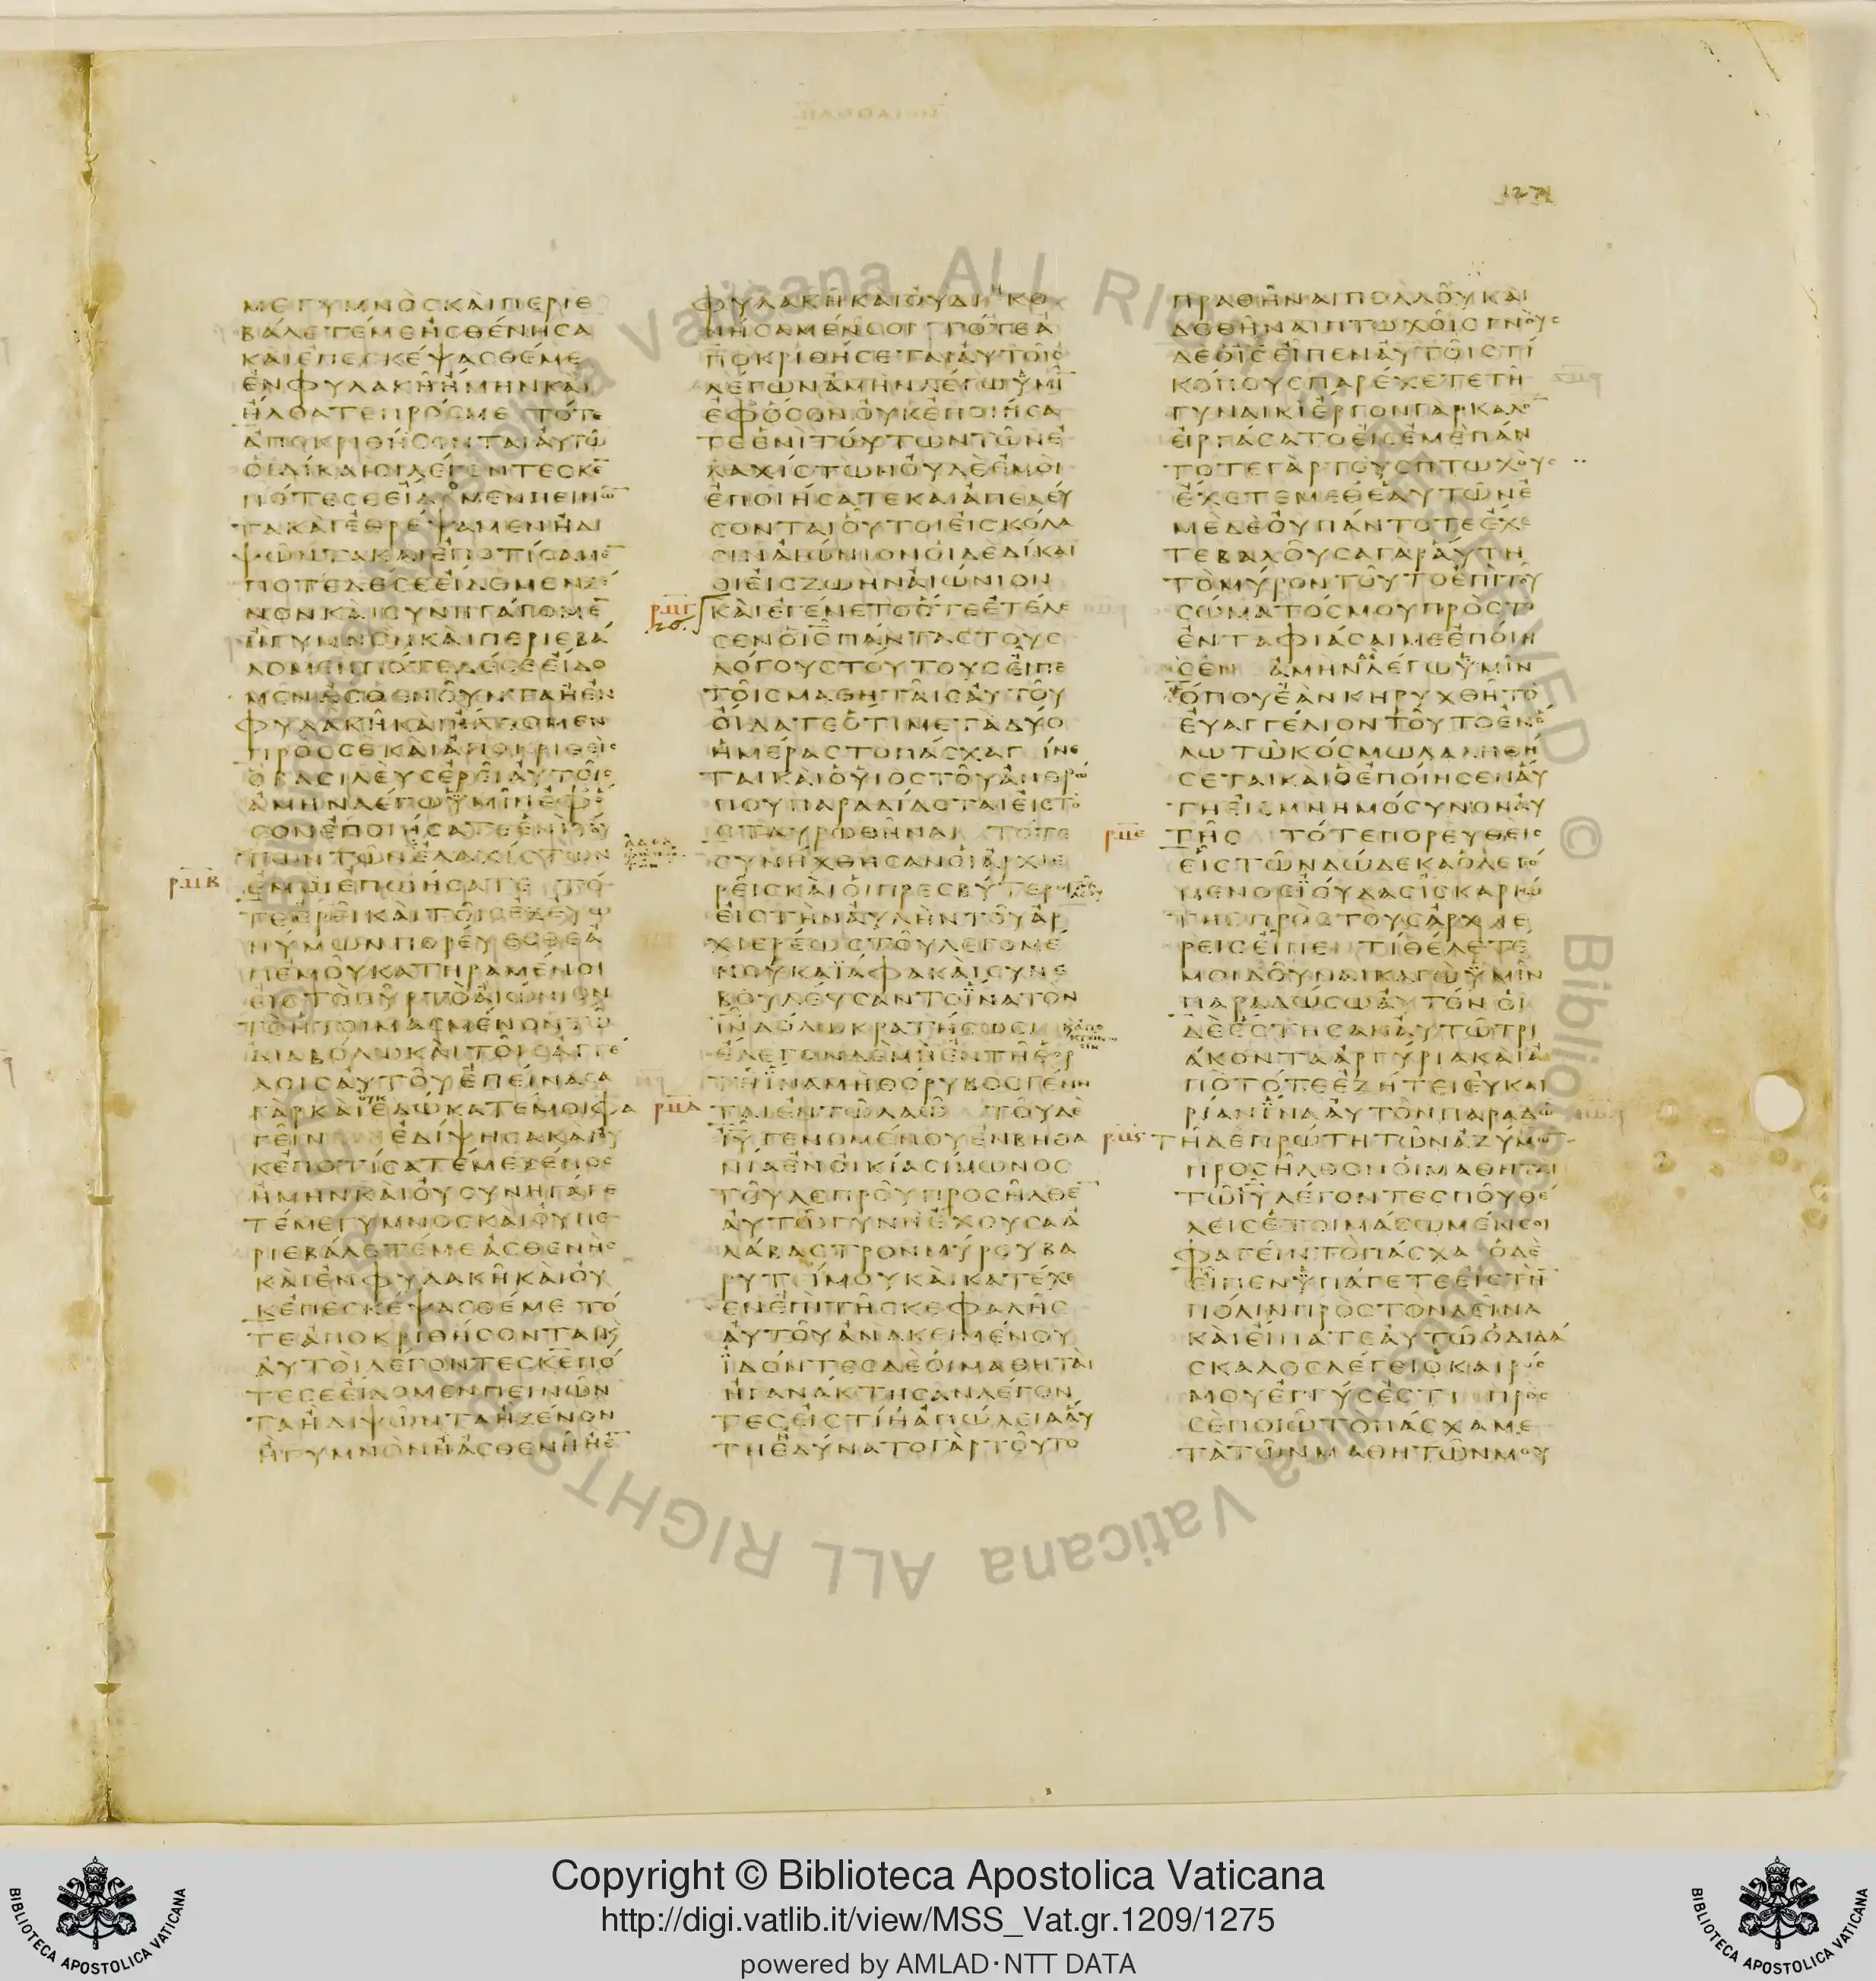 ΜΕΓΥΜΝΟϹΚΑΙΠΕΡΙΕ
ΒΑΛΕΤΕΜΕΗϹΘΕΝΗϹΑ
ΚΑΙΕΠΕϹΚΕΨΑϹΘΕΜΕ
ΕΝΦΥΛΑΚΗΗΜΗΝΚΑΙ
ΗΛΘΑΤΕΠΡΟϹΜΕ ΤΟΤΕ
ΑΠΟΚΡΙΘΗϹΟΝΤΑΙΑΥΤΩ
ΟΙΔΙΚΑΙΟΙΛΕΓΟΝΤΕϹΚΕ̅
ΠΟΤΕϹΕΕΙΔΟΜΕΝΠΕΙΝΩ̅
ΤΑΚΑΙΕΘΡΕΨΑΜΕΝΗΔΙ
ΨΩΝΤΑΚΑΙΕΠΟΤΙϹΑΜΕ̅
ΠΟΤΕΔΕϹΕΕΙΔΟΜΕΝΞΕ
ΝΟΝΚΑΙϹΥΝΗΓΑΓΟΜΕ̅
ΗΓΥΜΝΟΝΚΑΙΠΕΡΙΕΒΑ
ΛΟΜΕΝΠΟΤΕΔΕϹΕΕΙΔΟ
ΜΕΝΑϹΘΕΝΟΥΝΤΑΗΕΝ
ΦΥΛΑΚΗΚΑΙΗΛΘΟΜΕΝ
ΠΡΟϹϹΕΚΑΙΑΠΟΚΡΙΘΕΙϹ
ΟΒΑϹΙΛΕΥϹΕΡΕΙΑΥΤΟΙϹ
ΑΜΗΝΛΕΓΩΥΜΙΝΕΦΟ
ϹΟΝΕΠΟΙΗϹΑΤΕΕΝΙΤΟΥ
ΤΩΝΤΩΝΕΛΑΧΙϹΤΩΝ
ΕΜΟΙΕΠΟΙΗϹΑΤΕ ΤΟ
ΤΕΕΡΕΙΚΑΙΤΟΙϹΕΞΕΥΩ
ΝΥΜΩΝΠΟΡΕΥΕϹΘΕΑ
ΠΕΜΟΥΚΑΤΗΡΑΜΕΝΟΙ
ΕΙϹΤΟΠΥΡΤΟΑΙΩΝΙΟΝ
ΤΟΗΤΟΙΜΑϹΜΕΝΟΝΤΩ
ΔΙΑΒΟΛΩΚΑΙΤΟΙϹΑΓΓΕ
ΛΟΙϹΑΥΤΟΥΕΠΕΙΝΑϹΑ
ΓΑΡΚΑΙΟΥΚΕΔΩΚΑΤΕΜΟΙΦΑ
ΓΕΙΝ ΕΔΙΨΗϹΑΚΑΙΟΥ
ΚΕΠΟΤΙϹΑΤΕΜΕΞΕΝΟϹ
ΗΜΗΝΚΑΙΟΥϹΥΝΗΓΑΓΕ
ΤΕΜΕΓΥΜΝΟϹΚΑΙΟΥΠΕ
ΡΙΕΒΑΛΕΤΕΜΕΑϹΘΕΝΗϹ
ΚΑΙΕΝΦΥΛΑΚΗΚΑΙΟΥ
ΚΕΠΕϹΚΕΨΑϹΘΕΜΕ ΤΟ
ΤΕΑΠΟΚΡΙΘΗϹΟΝΤΑΙΚ
ΑΥΤΟΙΛΕΓΟΝΤΕϹΚΕ̅ΠΟ
ΤΕϹΕΕΙΔΟΜΕΝΠΕΙΝΩΝ
ΤΑΗΔΙΨΩΝΤΑΗΞΕΝΟΝ
ΗΓΥΜΝΟΝΗΑϹΘΕΝΗΗΕ̅
ΦΥΛΑΚΗΚΑΙΟΥΔΙΗΚΟ
ΝΗϹΑΜΕΝϹΟΙ ΤΟΤΕΑ
ΠΟΚΡΙΘΗϹΕΤΑΙΑΥΤΟΙϹ
ΛΕΓΩΝΑΜΗΝΛΕΓΩΥΜΙ̅
ΕΦΟϹΟΝΟΥΚΕΠΟΙΗϹΑ
ΤΕΕΝΙΤΟΥΤΩΝΤΩΝΕ
ΛΑΧΙϹΤΩΝΟΥΔΕΕΜΟΙ
ΕΠΟΙΗϹΑΤΕΚΑΙΑΠΕΛΕΥ
ϹΟΝΤΑΙΟΥΤΟΙΕΙϹΚΟΛΑ
ϹΙΝΑΙΩΝΙΟΝΟΙΔΕΔΙΚΑΙ
ΟΙΕΙϹΖΩΗΝΑΙΩΝΙΟΝ
ΚΑΙΕΓΕΝΕΤΟΟΤΕΕΤΕΛΕ
ϹΕΝΟΙϹ̅ΠΑΝΤΑϹΤΟΥϹ
ΛΟΓΟΥϹΤΟΥΤΟΥϹΕΙΠΕ
ΤΟΙϹΜΑΘΗΤΑΙϹΑΥΤΟΥ
ΟΙΔΑΤΕΟΤΙΜΕΤΑΔΥΟ
ΗΜΕΡΑϹΤΟΠΑϹΧΑΓΙΝΕ
ΤΑΙΚΑΙΟΥΙΟϹΤΟΥΑΝΘΡΩ
ΠΟΥΠΑΡΑΔΙΔΟΤΑΙΕΙϹΤΟ
ϹΤΑΥΡΩΘΗΝΑΙ ΤΟΤΕ
ϹΥΝΗΧΘΗϹΑΝΟΙΑΡΧΙΕ
ΡΕΙϹΚΑΙΟΙΠΡΕϹΒΥΤΕΡΟΙ
ΕΙϹΤΗΝΑΥΛΗΝΤΟΥΑΡ
ΧΙΕΡΕΩϹΤΟΥΛΕΓΟΜΕ
ΝΟΥΚΑΪΑΦΑΚΑΙϹΥΝΕ
ΒΟΥΛΕΥϹΑΝΤΟΪΝΑΤΟΝ
ΙΝ̅ΔΟΛΩΚΡΑΤΗϹΩϹΙ
ΕΛΕΓΟΝΔΕΜΗΕΝΤΗΕΟΡ
ΤΗΪΝΑΜΗΘΟΡΥΒΟϹΓΕΝΗ
ΤΑΙΕΝΤΩΛΑΩ ΤΟΥΔΕ
ΙΥ̅ΓΕΝΟΜΕΝΟΥΕΝΒΗΘΑ
ΝΙΑΕΝΟΙΚΙΑϹΙΜΩΝΟϹ
ΤΟΥΛΕΠΡΟΥΠΡΟϹΗΛΘΕ̅
ΑΥΤΩΓΥΝΗΕΧΟΥϹΑΑ
ΛΑΒΑϹΤΡΟΝΜΥΡΟΥΒΑ
ΡΥΤΙΜΟΥΚΑΙΚΑΤΕΧΕ
ΕΝΕΠΙΤΗϹΚΕΦΑΛΗϹ
ΑΥΤΟΥΑΝΑΚΕΙΜΕΝΟΥ
ΪΔΟΝΤΕϹΔΕΟΙΜΑΘΗΤΑΙ
ΗΓΑΝΑΚΤΗϹΑΝΛΕΓΟΝ
ΤΕϹΕΙϹΤΙΗΑΠΩΛΕΙΑΑΥ
ΤΗΕΔΥΝΑΤΟΓΑΡΤΟΥΤΟ
ΠΡΑΘΗΝΑΙΠΟΛΛΟΥΚΑΙ
ΔΟΘΗΝΑΙΠΤΩΧΟΙϹΓΝΟΥϹ
ΔΕΟΙϹ̅ΕΙΠΕΝΑΥΤΟΙϹΤΙ
ΚΟΠΟΥϹΠΑΡΕΧΕΤΕΤΗ
ΓΥΝΑΙΚΙΕΡΓΟΝΓΑΡΚΑΛΟ̅
ΕΙΡΓΑϹΑΤΟΕΙϹΕΜΕΠΑΝ
ΤΟΤΕΓΑΡΤΟΥϹΠΤΩΧΟΥϹ
ΕΧΕΤΕΜΕΘΕΑΥΤΩΝΕ
ΜΕΔΕΟΥΠΑΝΤΟΤΕΕΧΕ
ΤΕΒΑΛΟΥϹΑΓΑΡΑΥΤΗ
ΤΟΜΥΡΟΝΤΟΥΤΟΕΠΙΤΟΥ
ϹΩΜΑΤΟϹΜΟΥΠΡΟϹΤΟ
ΕΝΤΑΦΙΑϹΑΙΜΕΕΠΟΙΗ
ϹΕΝ ΑΜΗΝΛΕΓΩΥΜΙΝ
ΟΠΟΥΕΑΝΚΗΡΥΧΘΗΤΟ
ΕΥΑΓΓΕΛΙΟΝΤΟΥΤΟΕΝΟ
ΛΩΤΩΚΟϹΜΩΛΑΛΗΘΗ
ϹΕΤΑΙΚΑΙΟΕΠΟΙΗϹΕΝΑΥ
ΤΗΕΙϹΜΝΗΜΟϹΥΝΟΝΑΥ
ΤΗϹ ΤΟΤΕΠΟΡΕΥΘΕΙϹ
ΕΙϹΤΩΝΔΩΔΕΚΑΟΛΕΓΟ
ΜΕΝΟϹΪΟΥΔΑϹΪϹΚΑΡΙΩ
ΤΗϹΠΡΟϹΤΟΥϹΑΡΧΙΕ
ΡΕΙϹΕΙΠΕΝ ΤΙΘΕΛΕΤΕ
ΜΟΙΔΟΥΝΑΙΚΑΓΩΥΜΙΝ
ΠΑΡΑΔΩϹΩΑΥΤΟΝΟΙ
ΔΕΕϹΤΗϹΑΝΑΥΤΩΤΡΙ
ΑΚΟΝΤΑΑΡΓΥΡΙΑΚΑΙΑ
ΠΟΤΟΤΕΕΖΗΤΕΙΕΥΚΑΙ
ΡΙΑΝΪΝΑΑΥΤΟΝΠΑΡΑΔΩ
ΤΗΔΕΠΡΩΤΗΤΩΝΑΖΥΜΩ̅
ΠΡΟϹΗΛΘΟΝΟΙΜΑΘΗΤΑΙ
ΤΩΙΥ̅ΛΕΓΟΝΤΕϹΠΟΥΘΕ
ΛΕΙϹΕΤΟΙΜΑϹΩΜΕΝϹΟΙ
ΦΑΓΕΙΝΤΟΠΑϹΧΑ ΟΔΕ
ΕΙΠΕΝΫΠΑΓΕΤΕΕΙϹΤΗ̅
ΠΟΛΙΝΠΡΟϹΤΟΝΔΕΙΝΑ
ΚΑΙΕΙΠΑΤΕΑΥΤΩΟΔΙΔΑ
ϹΚΑΛΟϹΛΕΓΕΙΟΚΑΙΡΟϹ
ΜΟΥΕΓΓΥϹΕϹΤΙ ΠΡΟϹ
ϹΕΠΟΙΩΤΟΠΑϹΧΑΜΕ
ΤΑΤΩΝΜΑΘΗΤΩΝΜΟΥ
Copyright © Biblioteca Apostolica Vaticana
http://digi.vatlib.it/view/MSS_Vat.gr.1209/1275
powered by AMLAD·NTT DATA
BIBLIOTECA APOSTOLICA VATICANA
BIBLIOTECA APOSTOLICA VATICANA